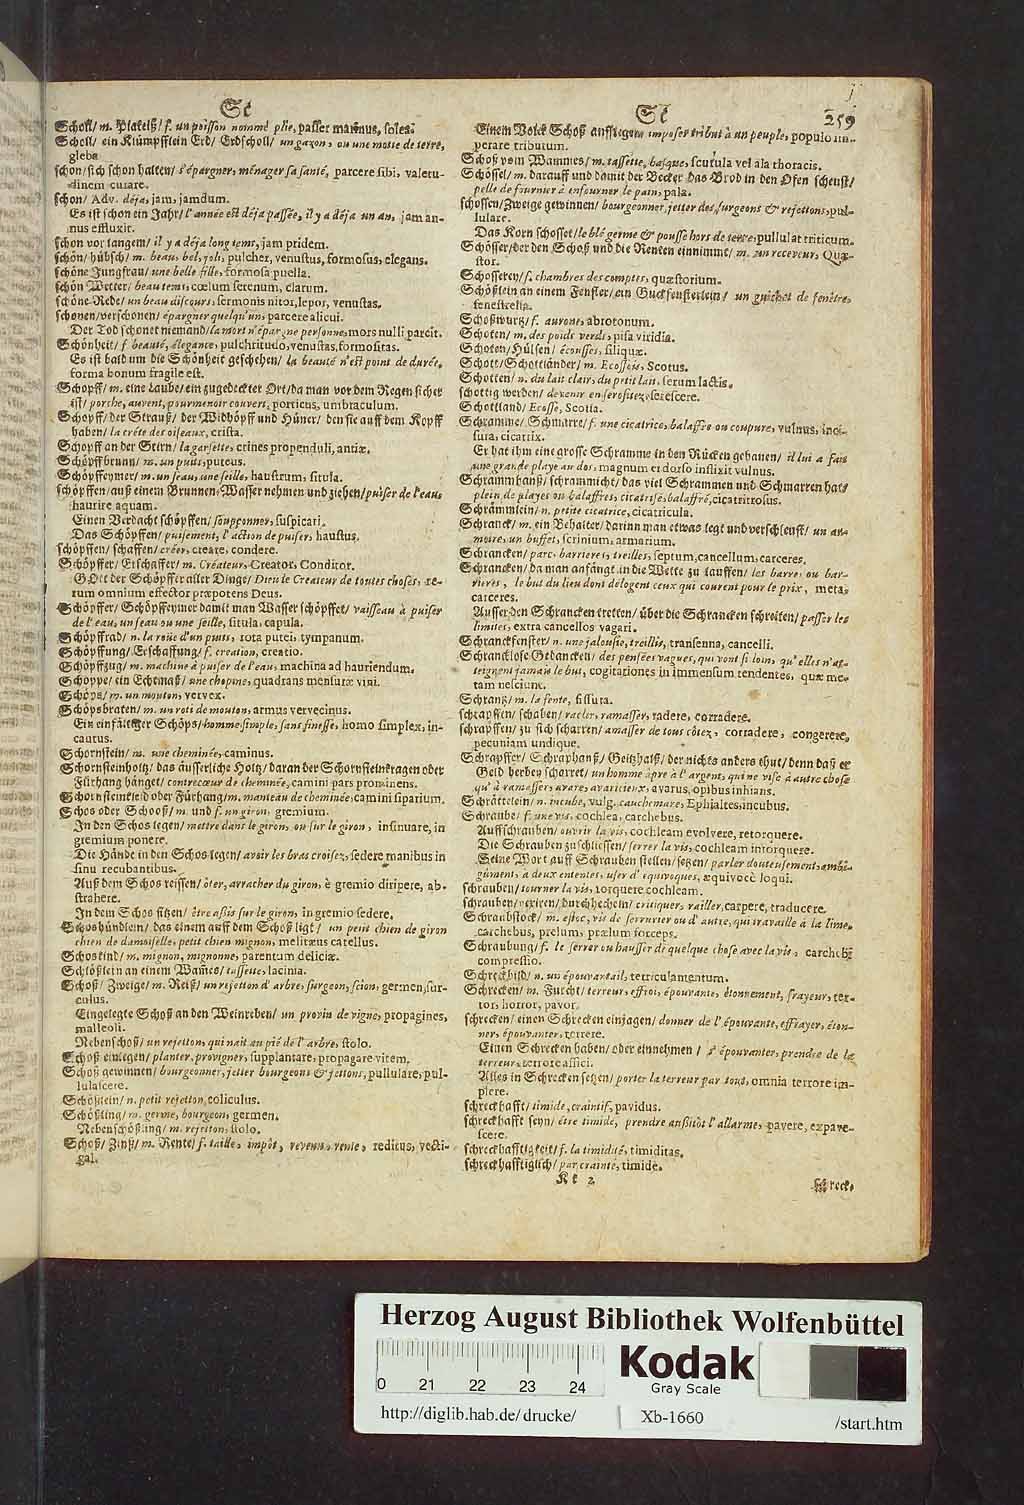 Sc
Scholl/ m. Plateiß/ f. un poisson nommé plie, passer marinus, solea.
Scholl/ ein Klümpfflein Erd/ Erdscholl/ un gazon, ou une motte de terre,
gleba
schon/sich schon halten/ s'épargner, ménager sa santé, parcere sibi, valetu-
dinem curare.
schon/ Adv. déja, jam, jamdum.
Es ist schon ein Jahr/ l'année est déja passée, il y a déja un an, jam an-
nus effluxit.
schon vor langem/ il y a déja long tems, jam pridem.
schön/ hübsch/ m. beau, bel, joli, pulcher, venustus, formosus, elegans.
schöne Jungfrau/ une belle fille, formosa puella.
schön Wetter/ beau tems, cœlum serenum, clarum.
schöne Rede/ un beau discours, sermonis nitor, lepor, venustas.
schonen/verschonen/ épargner quelqu'un, parcere alicui.
Der Tod schonet niemand/ la mort n'épargne personne, mors nulli parcit.
Schönheit/ f. beauté, élegance, pulchritudo, venustas, formositas.
Es ist bald um die Schönheit geschehen/ la beauté n'est point de durée,
forma bonum fragile est.
Schopff/ m. eine Laube/ ein zugedeckter Ort/ da man vor dem Regen sicher
ist/ porche, auvent, pourmenoir couvert, porticus, umbraculum.
Schopff/ der Strauß/ der Widhöpff und Hüner/ den sie auff dem Kopff
haben/ la crête des oiseaux, crista.
Schopff an der Stirn/ la garsette, crines propenduli, antiæ.
Schöpffbrunn/ m. un puits, puteus.
Schöpffeymer/ m. un seau, une seille, haustrum, situla.
schöpffen/ auß einem Brunnen/ Wasser nehmen und ziehen/ puiser de l'eau
haurire aquam.
Einen Verdacht schöpffen/ soupçonner, suspicari.
Das Schöpffen/ puisement, l'action de puiser, haustus.
schöpffen/ schaffen/ créer, creare, condere.
Schöpffer/ Erschaffer/ m. Créateur, Creator, Conditor.
GOtt der Schöpffer aller Dinge/ Dieu le Createur de toutes choses, re-
rum omnium effector præpotens Deus.
Schöpffer/ Schöpffeymer damit man Wasser schöpffet/ vaisseau à puiser
de l'eau, un seau ou une seille, situla, capula.
Schöpffrad/ n. la roüe d'un puits, rota putei, tympanum.
Schöpffung/ Erschaffung/ f. creation, creatio.
Schöpffzug/ m. machine à puiser de l'eau, machina ad hauriendum.
Schoppe/ ein Echtmaß/ une chopine, quadrans mensuræ vini.
Schöps/ m. un mouton, vervex.
Schöpsbraten/ m. un roti de mouton, armus vervecinus.
Ein einfältiger Schöps/ homme simple, sans finesse, homo simplex, in-
cautus.
Schornstein/ m. une cheminée, caminus.
Schornsteinholtz/ das äusserliche Holtz/ daran der Schornsteinkragen oder
Fürhang hänget/ contrecœur de cheminée, camini pars prominens.
Schornsteinkleid oder Fürhang/ m. manteau de cheminée, camini siparium.
Schos oder Schooß/ m. und f. un giron, gremium.
In den Schos legen/ mettre dans le giron, ou sur le giron, insinuare, in
gremium ponere.
Die Hände in den Schos legen/ avoir les bras croisez, sedere manibus in
sinu recubantibus.
Auß dem Schos reissen/ ôter, arracher du giron, è gremio diripere, ab-
strahere.
In dem Schos sitzen/ être assis sur le giron, in gremio sedere.
Schoshündlein/ das einem auff dem Schoß ligt/ un petit chien de giron
chien de damoiselle, petit chien mignon, melitæus catellus.
Schoskind/ m. mignon, mignonne, parentum deliciæ.
Schößlein an einem Wames/ tassette, lacinia.
Schoß/ Zweige/ m. Reiß/ un rejetton d'arbre, surgeon, scion, germen, sur-
culus.
Eingelegte Schoß an den Weinreben/ un provin de vigne, propagines,
malleoli.
Nebenschoß/ un rejetton, qui naît au pié de l'arbre, stolo.
Schoß einlegen/ planter, provigner, supplantare, propagare vitem.
Schoß gewinnen/ bourgeonner, jetter bourgeons & jettons, pullulare, pul-
lulascere.
Schößlein/ n. petit rejetton, coliculus.
Schößling/ m. germe, bourgeon, germen.
Nebenschößling/ m. rejetton, stolo.
Schoß/ Zinß/ m. Rente/ f. taille, impôt, revenu, rente, reditus, vecti-
gal.
Sc
259
Einem Volck Schoß aufflegen/ imposer tribut à un peuple, populo im-
perare tributum.
Schoß vom Wammes/ m. tassette, basque, scutula vel ala thoracis.
Schössel/ m. darauff und damit der Becker das Brod in den Ofen scheust/
pelle de fournir à enfourner le pain, pala.
schossen/Zweige gewinnen/ bourgeonner, jetter des surgeons & rejettons, pul-
lulare.
Das Korn schosset/ le blé germe & pousse hors de terre, pullulat triticum.
Schösser/der den Schoß und die Renten einnimmt/ m. un receveur, Quæ-
stor.
Schosserey/ f. chambres des comptes, quæstorium.
Schößlein an einem Fenster/ ein Guckfensterlein/ un guichet de fenêtre,
fenestrella.
Schoßwurtz/ f. aurone, abrotonum.
Schoten/ m. des poids verds, pisa viridia.
Schoten/ Hülsen/ écosses, siliquæ.
Schott/ Schottländer/ m. Ecossois, Scotus.
Schotten/ n. du lait clair, du petit lait, serum lactis.
schottig werden/ devenir en serositez, serescere.
Schottland/ Ecosse, Scotia.
Schramme/ Schmarre/ f. une cicatrice, balaffre ou coupure, vulnus, inci-
sura, cicatrix.
Er hat ihm eine grosse Schramme in den Rücken gehauen/ il lui a fait
une grande playe au dos, magnum ei dorso inflixit vulnus.
Schrammhanß/ schrammicht/ das viel Schrammen und Schmarren hat/
plein de playes ou balaffres, cicatrisé, balaffré, cicatritrosus.
Schrämmlein/ n. petite cicatrice, cicatricula.
Schranck/ m. ein Behalter/ darinn man etwas legt und verschleust/ un ar-
moire, un buffet, scrinium, armarium.
Schrancken/ parc, barrieres, treilles, septum, cancellum, carceres.
Schrancken/ da man anfängt in die Wette zu lauffen/ les barre, ou bar-
rieres, le but du lieu dont délogent ceux qui courent pour le prix, meta,
carceres.
Ausser den Schrancken tretten/ über die Schrancken schreiten/ passer les
limites, extra cancellos vagari.
Schranckfenster/ n. une jalousie, treillis, transenna, cancelli.
Schrancklose Gedancken/ des pensées vagues, qui vont si loin, qu'elles n'at-
teignent jamais le but, cogitationes in immensum tendentes, quæ me-
tam nesciunt.
Schrantz/ m. la fente, fissura.
schrapffen/ schaben/ racler, ramasser, radere, corradere.
schrapffen/ zu sich scharren/ amasser de tous côtez, corradere, congerere,
pecuniam undique.
Schrapffer/ Schraphanß/ Geitzhalß/ der nichts anders thut/ denn daß er
Geld herbey scharret/ un homme âpre à l'argent, qui ne vise à autre chose
qu'à ramasser, avare, avaricieux, avarus, opibus inhians.
Schrättelein/ n. incube, vulg. cauchemare, Ephialtes, incubus.
Schraube/ f. une vis, cochlea, carchebus.
Auffschrauben/ ouvrir la vis, cochleam evolvere, retorquere.
Die Schrauben zuschliessen/ serrer la vis, cochleam intorquere.
Seine Wort auff Schrauben stellen/ setzen/ parler douteusement, ambi-
gûment, à deux ententes, user d'équivoques, æquivocè loqui.
schrauben/ tourner la vis, torquere cochleam.
schrauben/ vexiren/ durchhecheln/ critiquer, railler, carpere, traducere.
Schraubstock/ m. estoc, vis de serrurier ou d'autre, qui travaille à la lime,
carchebus, prelum, prælum forceps.
Schraubung/ f. le serrer ou hausser de quelque chose avec la vis, carchebi
compressio.
Schreckbild/ n. un épouvantail, terriculamentum.
Schrecken/ m. Furcht/ terreur, effroi, épouvante, étonnement, frayeur, ter-
ror, horror, pavor.
schrecken/ einen Schrecken einjagen/ donner de l'épouvante, effrayer, éton-
ner, épouvanter, terrere.
Einen Schrecken haben/ oder einnehmen/ s'épouvanter, prendre de la
terreur, terrore affici.
Alles in Schrecken setzen/ porter la terreur par tout, omnia terrore im-
plere.
schreckhafft/ timide, craintif, pavidus.
schreckhafft seyn/ être timide, prendre aussitôt l'allarme, pavere, expave-
scere.
schreckhafftigkeit/ f. la timidité, timiditas.
schreckhafftiglich/ par crainte, timide.
Kk 2
Schreck-
Herzog August Bibliothek Wolfenbüttel
0 21 22 23 24
Kodak
Gray Scale
http://diglib.hab.de/drucke/ Xb-1660 /start.htm